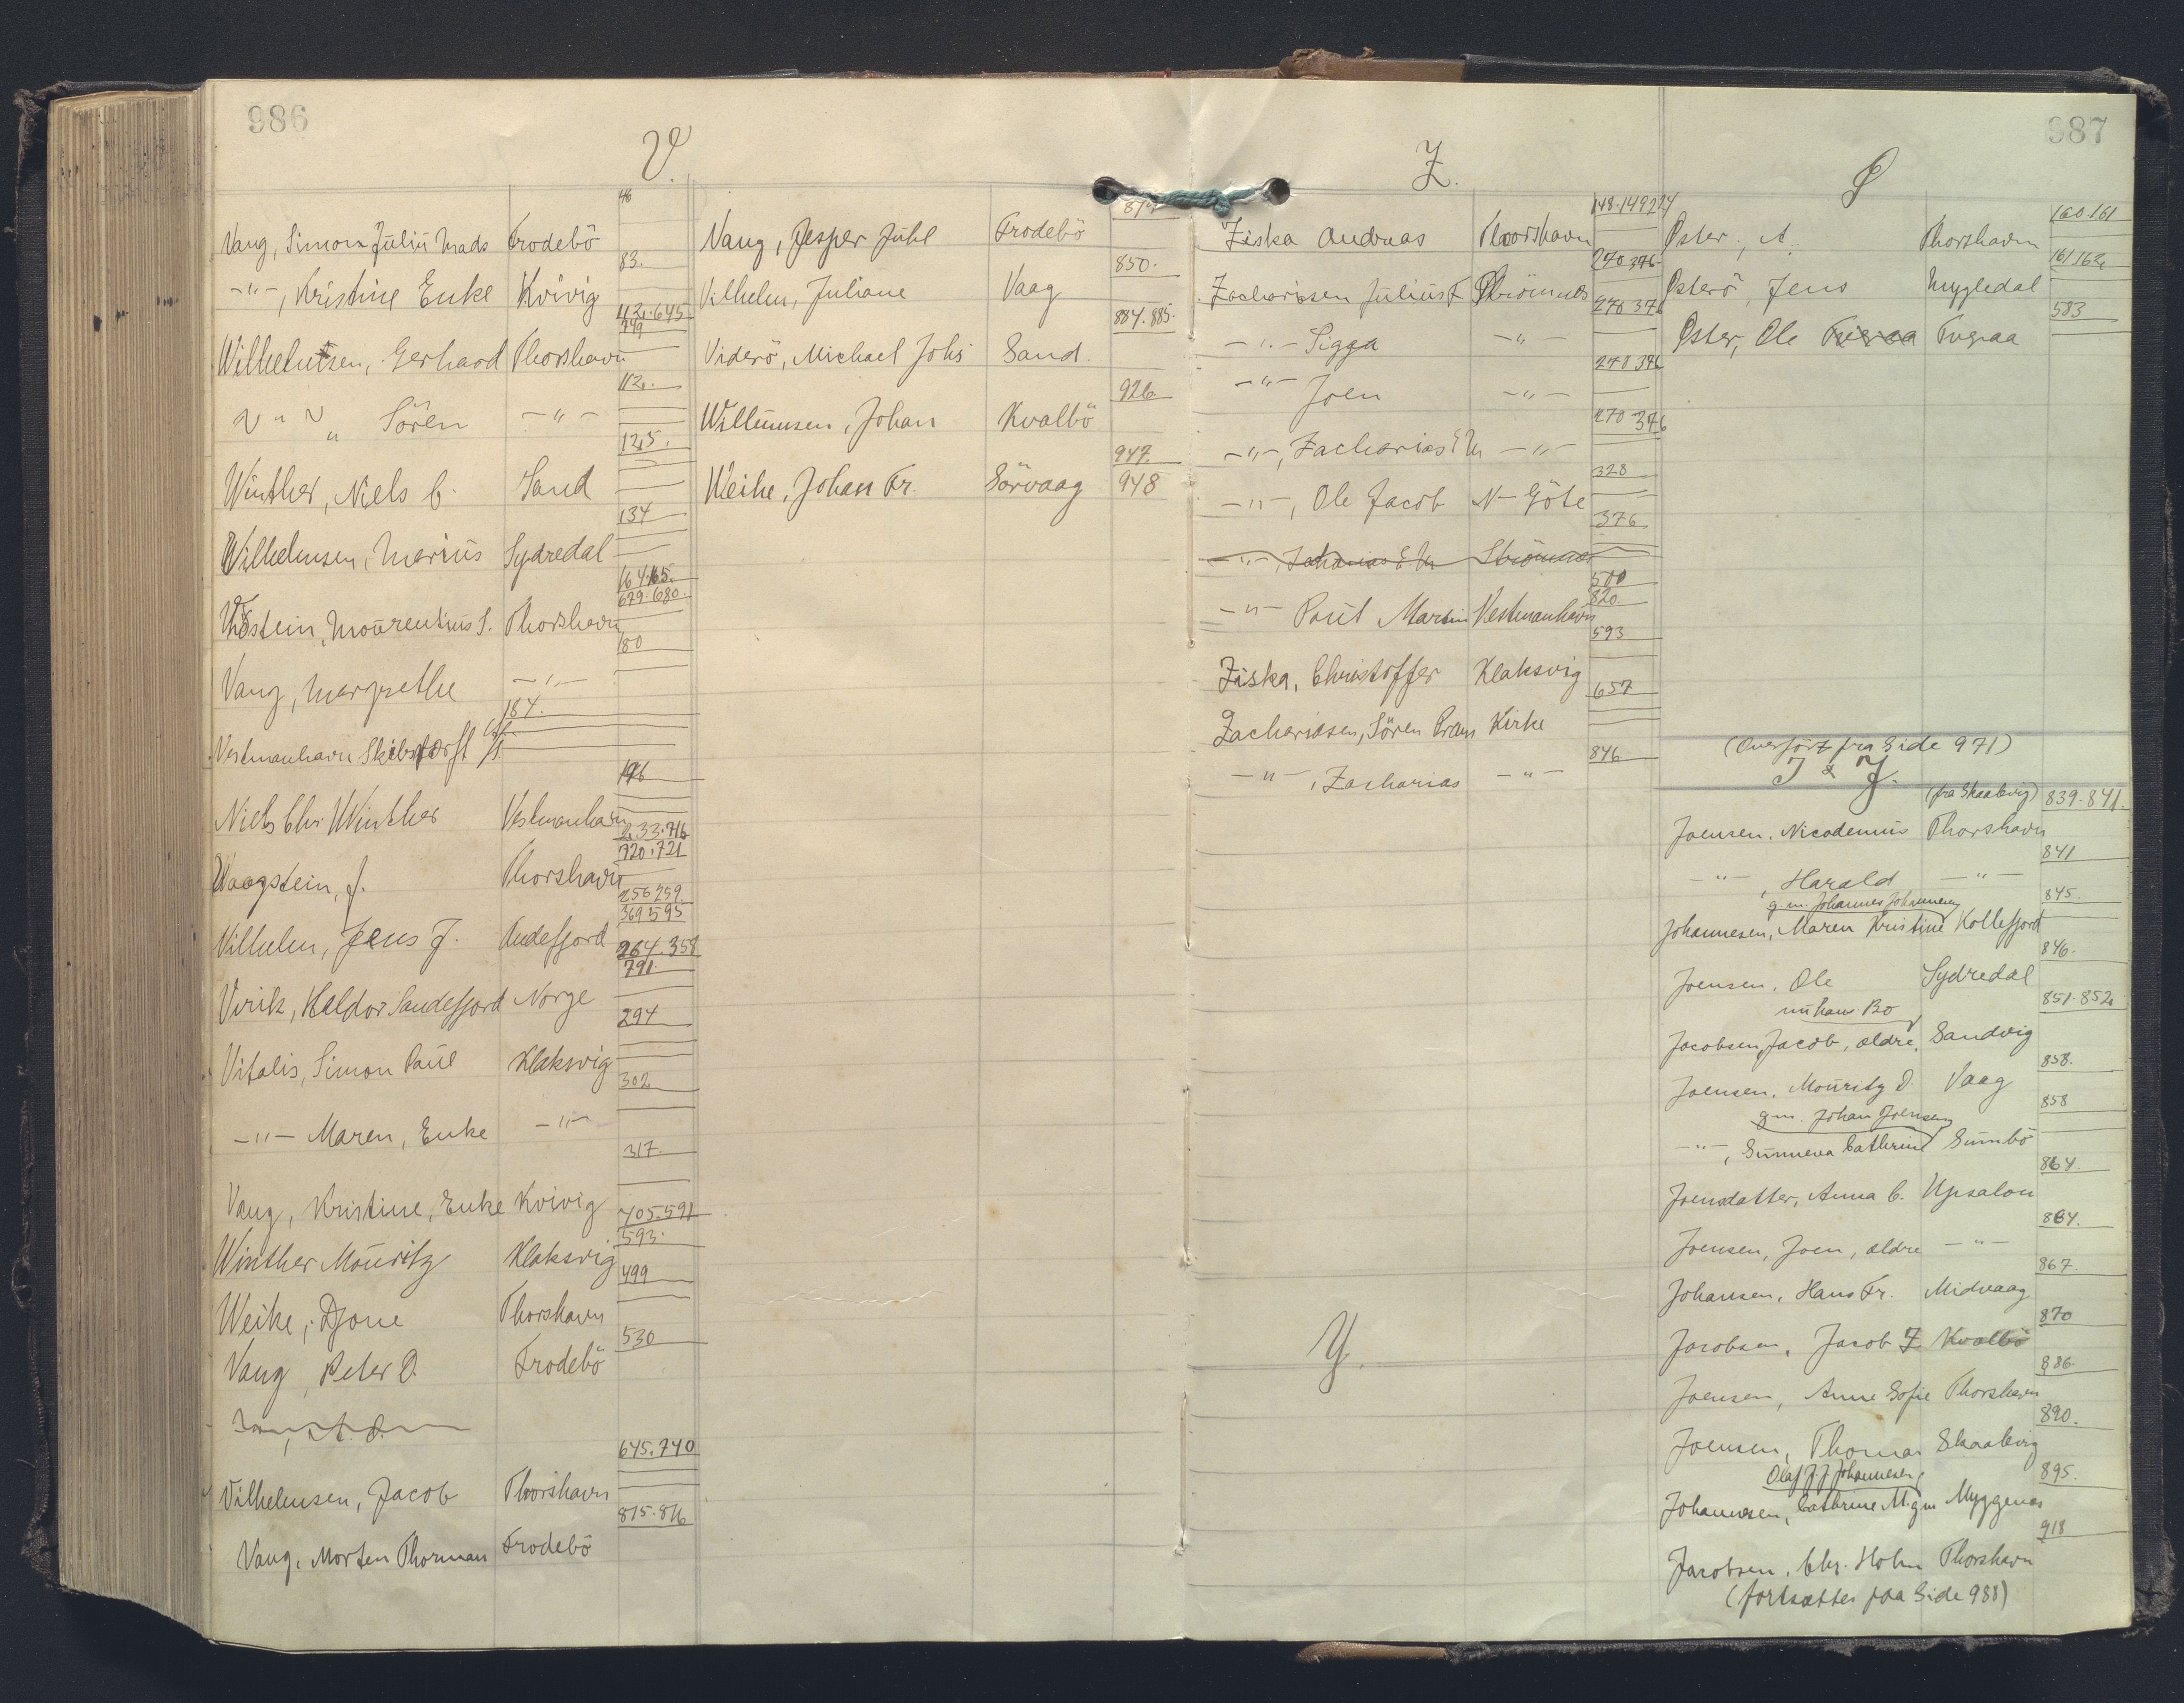 986
V.
46
Vang, Simon Juliu Mads Frodebö
83.
-"-, Kristine Enke Kvivig
112.645
749
Wilhelmsen, Gerhard Thorshavn
112.
" Sören -"-
125.
Winther, Niels C. Sand
134
Wilhelmsen, Marius Sydredal
164.165.
679.680.
Mourentius S. Thorshavn
180
Vang, Margrethe -"-
184.
Vestmanhavn
196
Niels Chr. Winther Vestmanhavn
233.716
720.721
Waagstein, J. Thorshavn
256 259.
369 595
Vilhelm, Jens J. Andefjord
264.358
791.
Virik, Haldor Sandefjord Norge
294
Vitalis, Simon Paul Klaksvig
302
-"- Maren, Enke -"-
317.
Vang, Kristine, Enke Kvivig
405.591
593.
Winther Mouritz Klaksvig
499
Weihe, Djone Thorshavn
530
Vang, Peter D. Frodebö
645.740
Vilhelmsen, Jacob Thorshavn
815.816
Vang, Morten Thorman Frodebö
Vang, Jesper Juhl Frodebö
850.
Vilhelm, Juliane Vaag
884.885.
Viderö, Michael Johs Sand.
926
Willumsen, Johan Kvalbö
947.
Weihe, Johan Fr. Sörvaag 948
987
Z.
148.149 214
Ziska Andreas Thorshavn
270 376
Zachariasen Julius F Strömnæs
270 376
-"- Sigga -"-
270 376
-"- Joen -"-
270 376
-"-, Zacharias E M -"-
328
-"-, Ole Jacob N-Göte
376
-"-, Zacharias E M Strömnæs
500
820.
-"- Poul Martin Vestmanhavn
593
Ziska, Christoffer Klaksvig
657
Zachariasen, Sören Frans Kirke
846
-"-, Zacharias -"-
Y.
Ø
160.161
Øster, A. Thorshavn
161 162
Østerö, Jens Mygledal
583
Øster, Ole Tveraa Tveraa
(Overført fra Side 971)
I & J.
(fra Skaalevig) 839.841.
Joensen, Nicodemus Thorshavn
841
-"-, Harald -"-
g.m. Johannes Johannesen 845.
Johannesen, Maren Kristine Kollefjord
846.
Joensen, Ole Sydredal
nu hans Bo 851.852
Jacobsen, Jacob, ældre, Sandvig
858.
Joensen, Mouritz D. Vaag
g.m. Johan Joensen 858
-"-, Sunneva Cathrine Sumbö
864.
Joensdatter, Anna C. Upsalon
864.
Joensen, Joen, ældre -"-
867.
Johansen, Hans Fr. Midvaag
870
Jacobsen, Jacob J. Kvalbö
886.
Joensen, Anne Sofie Thorshavn
890.
Joensen, Thomas Skaalevig
Olaf J. J. Johannesen 895.
Johannesen, Cathrine M. gm Myggenæs
918
Jacobsen, Chr. Holm Thorshavn
(fortsættes paa Side 988)